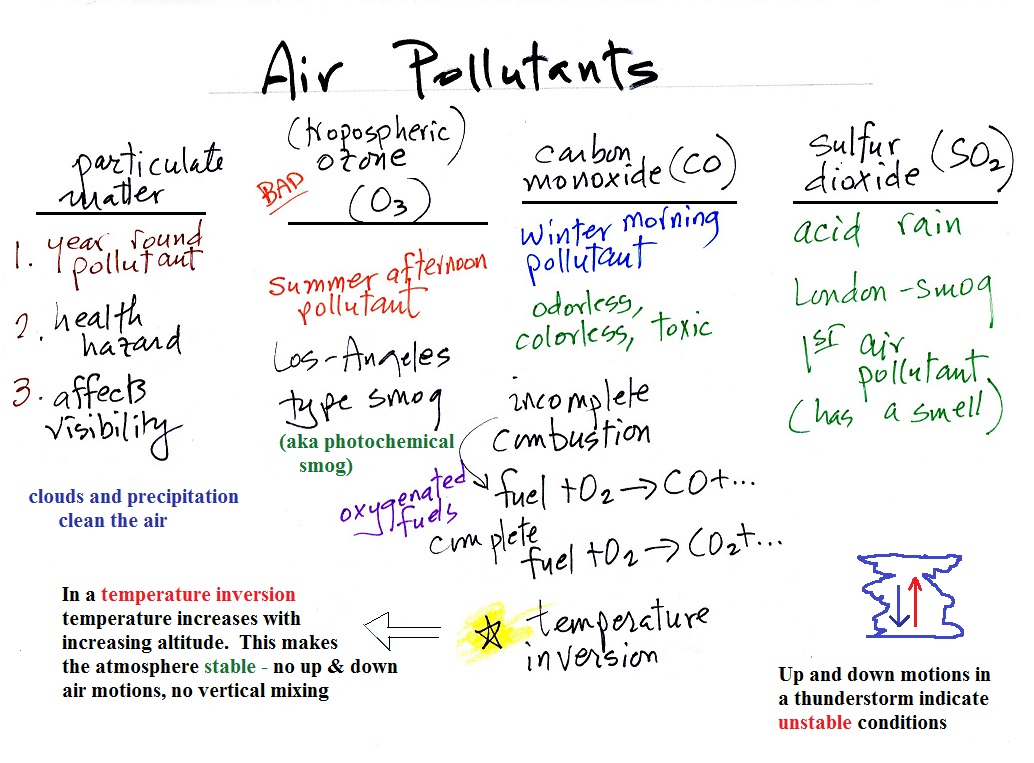 Air Pollutants
particulate
matter
1. year round
pollutant
2. health
hazard
3. affects
visibility
clouds and precipitation
clean the air
(tropospheric)
ozone
BAD
(O3)
Summer afternoon
pollutant
Los-Angeles
type smog
(aka photochemical
smog)
carbon
monoxide (CO)
Winter morning
pollutant
odorless,
colorless, toxic
incomplete
combustion
fuel + O2 → CO + ...
oxygenated
fuels
complete
fuel + O2 → CO2 + ...
☆ temperature
inversion
sulfur
dioxide (SO2)
acid rain
London-smog
1st air
pollutant
(has a smell)
In a temperature inversion
temperature increases with
increasing altitude. This makes
the atmosphere stable - no up & down
air motions, no vertical mixing
Up and down motions in
a thunderstorm indicate
unstable conditions